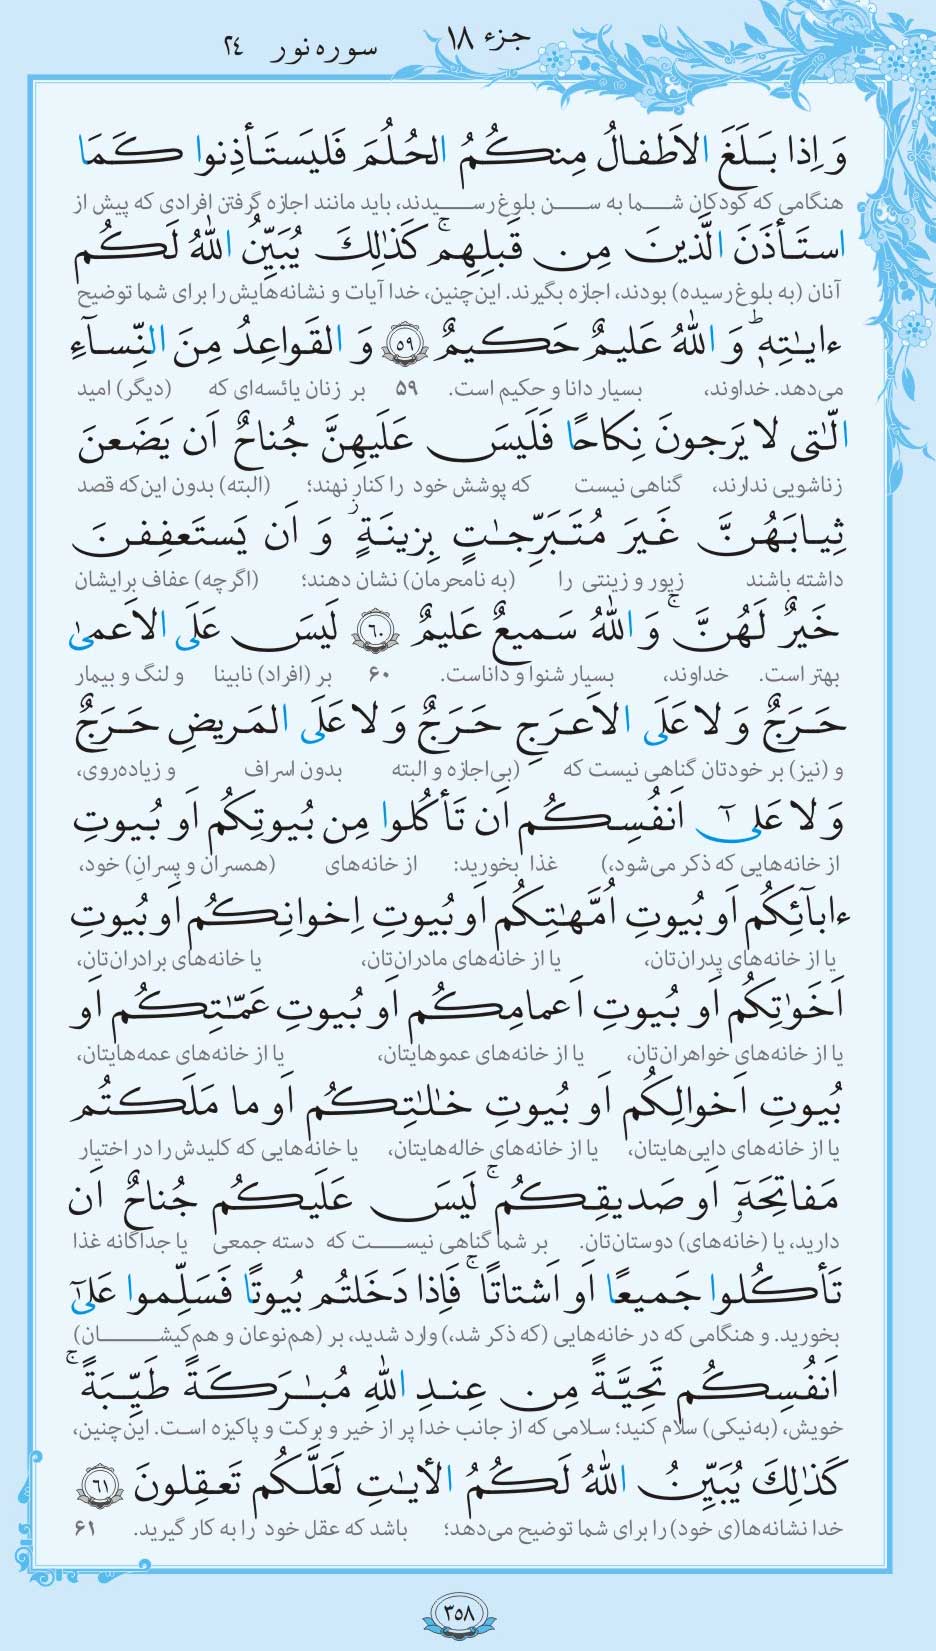 جزء ۱۸
سوره نور ۲۴
وَ اِذا بَلَغَ الاَطفالُ مِنكُمُ الحُلُمَ فَليَستَأذِنوا كَمَا
هنگامی که کودکان شما به سن بلوغ رسیدند، باید مانند اجازه گرفتن افرادی که پیش از
استَأذَنَ الَّذينَ مِن قَبلِهِم ۚ كَذٰلِكَ يُبَيِّنُ اللّٰهُ لَكُم
آنان (به بلوغ رسیده) بودند، اجازه بگیرند. این‌چنین، خدا آیات و نشانه‌هایش را برای شما توضیح
ءايٰتِهٖ ؕ وَ اللّٰهُ عَليمٌ حَكيمٌ ﴿۵۹﴾ وَ القَواعِدُ مِنَ النِّسآءِ
می‌دهد. خداوند، بسیار دانا و حکیم است. ۵۹ بر زنان یائسه‌ای که (دیگر) امید
الّٰتى لا يَرجونَ نِكاحًا فَلَيسَ عَلَيهِنَّ جُناحٌ اَن يَضَعنَ
زناشویی ندارند، گناهی نیست که پوشش خود را کنار نهند؛ (البته) بدون این‌که قصد
ثِيابَهُنَّ غَيرَ مُتَبَرِّجٰتٍ بِزينَةٍ ۖ وَ اَن يَستَعفِفنَ
داشته باشند زیور و زینتی را (به نامحرمان) نشان دهند؛ (اگرچه) عفاف برایشان
خَيرٌ لَهُنَّ ۚ وَ اللّٰهُ سَميعٌ عَليمٌ ﴿۶۰﴾ لَيسَ عَلَى الاَعمىٰ
بهتر است. خداوند، بسیار شنوا و داناست. ۶۰ بر (افراد) نابینا و لنگ و بیمار
حَرَجٌ وَ لا عَلَى الاَعرَجِ حَرَجٌ وَ لا عَلَى المَريضِ حَرَجٌ
و (نیز) بر خودتان گناهی نیست که (بی‌اجازه و البته بدون اسراف و زیاده‌روی،
وَ لا عَلىٰٓ اَنفُسِكُم اَن تَأكُلوا مِن بُيوتِكُم اَو بُيوتِ
از خانه‌هایی که ذکر می‌شود،) غذا بخورید: از خانه‌های (همسران و پسرانِ) خود،
ءابآئِكُم اَو بُيوتِ اُمَّهٰتِكُم اَو بُيوتِ اِخوانِكُم اَو بُيوتِ
یا از خانه‌های پدران‌تان، یا از خانه‌های مادران‌تان، یا خانه‌های برادران‌تان،
اَخَوٰتِكُم اَو بُيوتِ اَعمامِكُم اَو بُيوتِ عَمّٰتِكُم اَو
یا از خانه‌های خواهران‌تان، یا از خانه‌های عموهایتان، یا از خانه‌های عمه‌هایتان،
بُيوتِ اَخوالِكُم اَو بُيوتِ خٰلٰتِكُم اَو ما مَلَكتُم
یا از خانه‌های دایی‌هایتان، یا از خانه‌های خاله‌هایتان، یا خانه‌هایی که کلیدش را در اختیار
مَفاتِحَهٗٓ اَو صَديقِكُم ۚ لَيسَ عَلَيكُم جُناحٌ اَن
دارید، یا (خانه‌های) دوستان‌تان. بر شما گناهی نیست که دسته جمعی یا جداگانه غذا
تَأكُلوا جَميعًا اَو اَشتاتًا ۚ فَاِذا دَخَلتُم بُيوتًا فَسَلِّموا عَلىٰٓ
بخورید. و هنگامی که در خانه‌هایی (که ذکر شد،) وارد شدید، بر (هم‌نوعان و هم‌کیشان)
اَنفُسِكُم تَحِيَّةً مِن عِندِ اللّٰهِ مُبٰرَكَةً طَيِّبَةً ۚ
خویش، (به‌نیکی) سلام کنید؛ سلامی که از جانب خدا پر از خیر و برکت و پاکیزه است. این‌چنین،
كَذٰلِكَ يُبَيِّنُ اللّٰهُ لَكُمُ الأيٰتِ لَعَلَّكُم تَعقِلونَ ﴿۶۱﴾
خدا نشانه‌ها(ی خود) را برای شما توضیح می‌دهد؛ باشد که عقل خود را به کار گیرید. ۶۱
۳۵۸